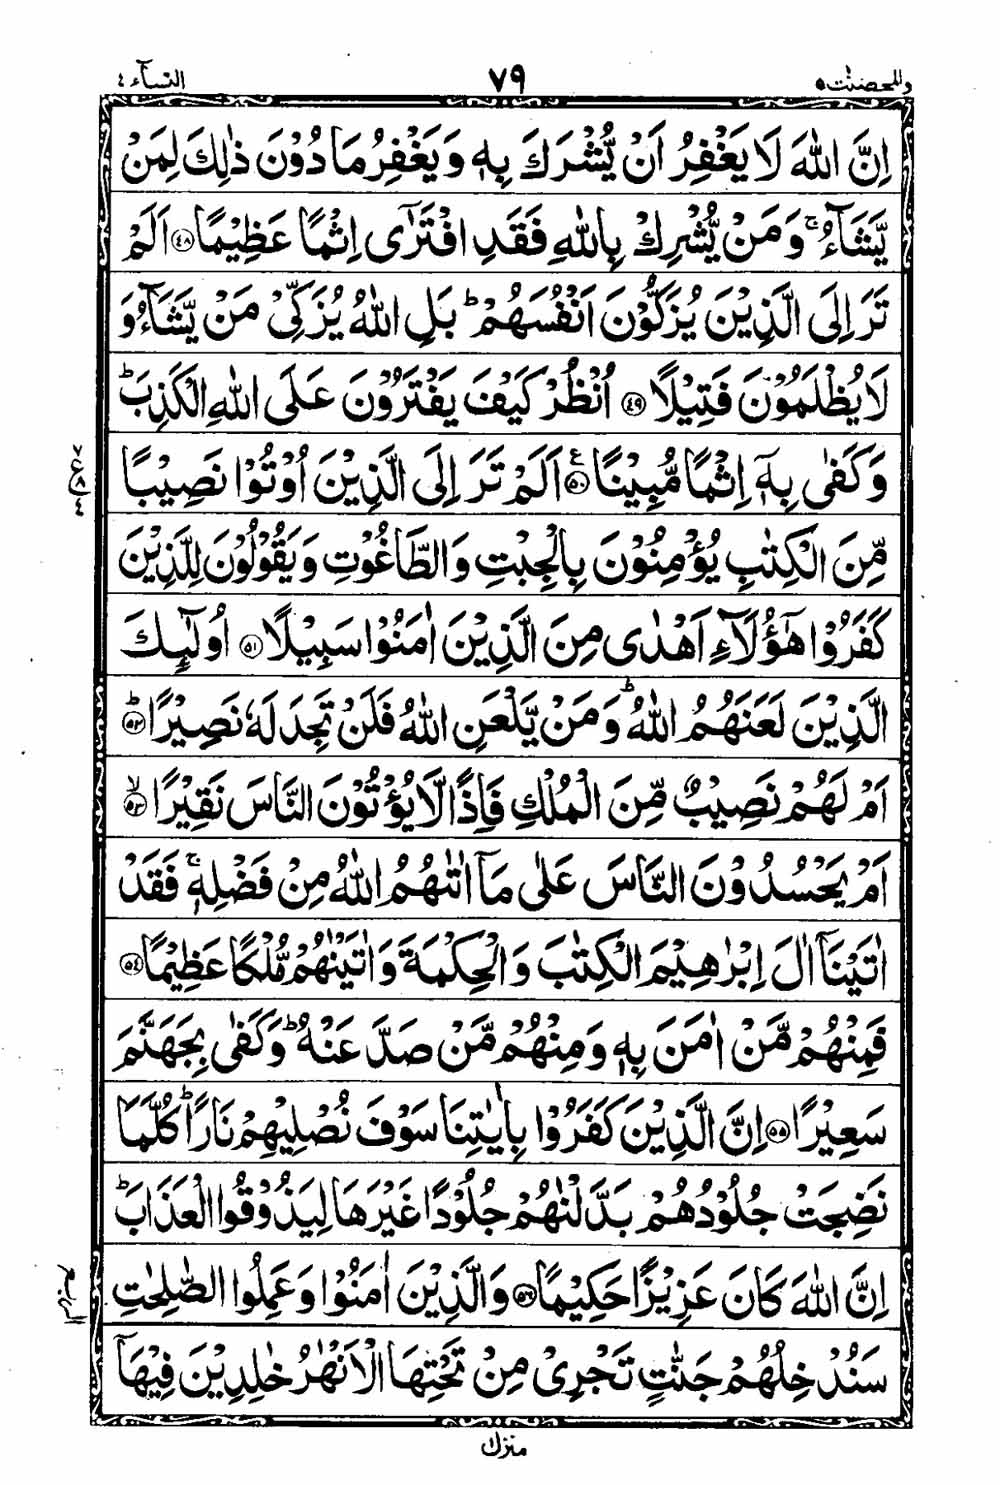 والمحصنٰت ٥ ٧٩ النسآء ٤
اِنَّ اللّٰهَ لَا يَغْفِرُ اَنْ يُّشْرَكَ بِهٖ وَيَغْفِرُ مَا دُوْنَ ذٰلِكَ لِمَنْ
يَّشَآءُ ۚ وَمَنْ يُّشْرِكْ بِاللّٰهِ فَقَدِ افْتَرٰٓى اِثْمًا عَظِيْمًا ﴿٤٨﴾ اَلَمْ
تَرَ اِلَى الَّذِيْنَ يُزَكُّوْنَ اَنْفُسَهُمْ ؕ بَلِ اللّٰهُ يُزَكِّىْ مَنْ يَّشَآءُ وَ
لَا يُظْلَمُوْنَ فَتِيْلًا ﴿٤٩﴾ اُنْظُرْ كَيْفَ يَفْتَرُوْنَ عَلَى اللّٰهِ الْكَذِبَ ؕ
وَكَفٰى بِهٖٓ اِثْمًا مُّبِيْنًا ﴿٥٠﴾ ع اَلَمْ تَرَ اِلَى الَّذِيْنَ اُوْتُوْا نَصِيْبًا
مِّنَ الْكِتٰبِ يُؤْمِنُوْنَ بِالْجِبْتِ وَالطَّاغُوْتِ وَيَقُوْلُوْنَ لِلَّذِيْنَ
كَفَرُوْا هٰٓؤُلَآءِ اَهْدٰى مِنَ الَّذِيْنَ اٰمَنُوْا سَبِيْلًا ﴿٥١﴾ اُولٰٓئِكَ
الَّذِيْنَ لَعَنَهُمُ اللّٰهُ ؕ وَمَنْ يَّلْعَنِ اللّٰهُ فَلَنْ تَجِدَ لَهٗ نَصِيْرًا ؕ ﴿٥٢﴾
اَمْ لَهُمْ نَصِيْبٌ مِّنَ الْمُلْكِ فَاِذًا لَّا يُؤْتُوْنَ النَّاسَ نَقِيْرًا ۙ ﴿٥٣﴾
اَمْ يَحْسُدُوْنَ النَّاسَ عَلٰى مَآ اٰتٰىهُمُ اللّٰهُ مِنْ فَضْلِهٖ ۚ فَقَدْ
اٰتَيْنَآ اٰلَ اِبْرٰهِيْمَ الْكِتٰبَ وَالْحِكْمَةَ وَاٰتَيْنٰهُمْ مُّلْكًا عَظِيْمًا ﴿٥٤﴾
فَمِنْهُمْ مَّنْ اٰمَنَ بِهٖ وَمِنْهُمْ مَّنْ صَدَّ عَنْهُ ؕ وَكَفٰى بِجَهَنَّمَ
سَعِيْرًا ﴿٥٥﴾ اِنَّ الَّذِيْنَ كَفَرُوْا بِاٰيٰتِنَا سَوْفَ نُصْلِيْهِمْ نَارًا ؕ كُلَّمَا
نَضِجَتْ جُلُوْدُهُمْ بَدَّلْنٰهُمْ جُلُوْدًا غَيْرَهَا لِيَذُوْقُوا الْعَذَابَ ؕ
اِنَّ اللّٰهَ كَانَ عَزِيْزًا حَكِيْمًا ﴿٥٦﴾ وَالَّذِيْنَ اٰمَنُوْا وَعَمِلُوا الصّٰلِحٰتِ
الربع
سَنُدْخِلُهُمْ جَنّٰتٍ تَجْرِىْ مِنْ تَحْتِهَا الْاَنْهٰرُ خٰلِدِيْنَ فِيْهَآ
منزل